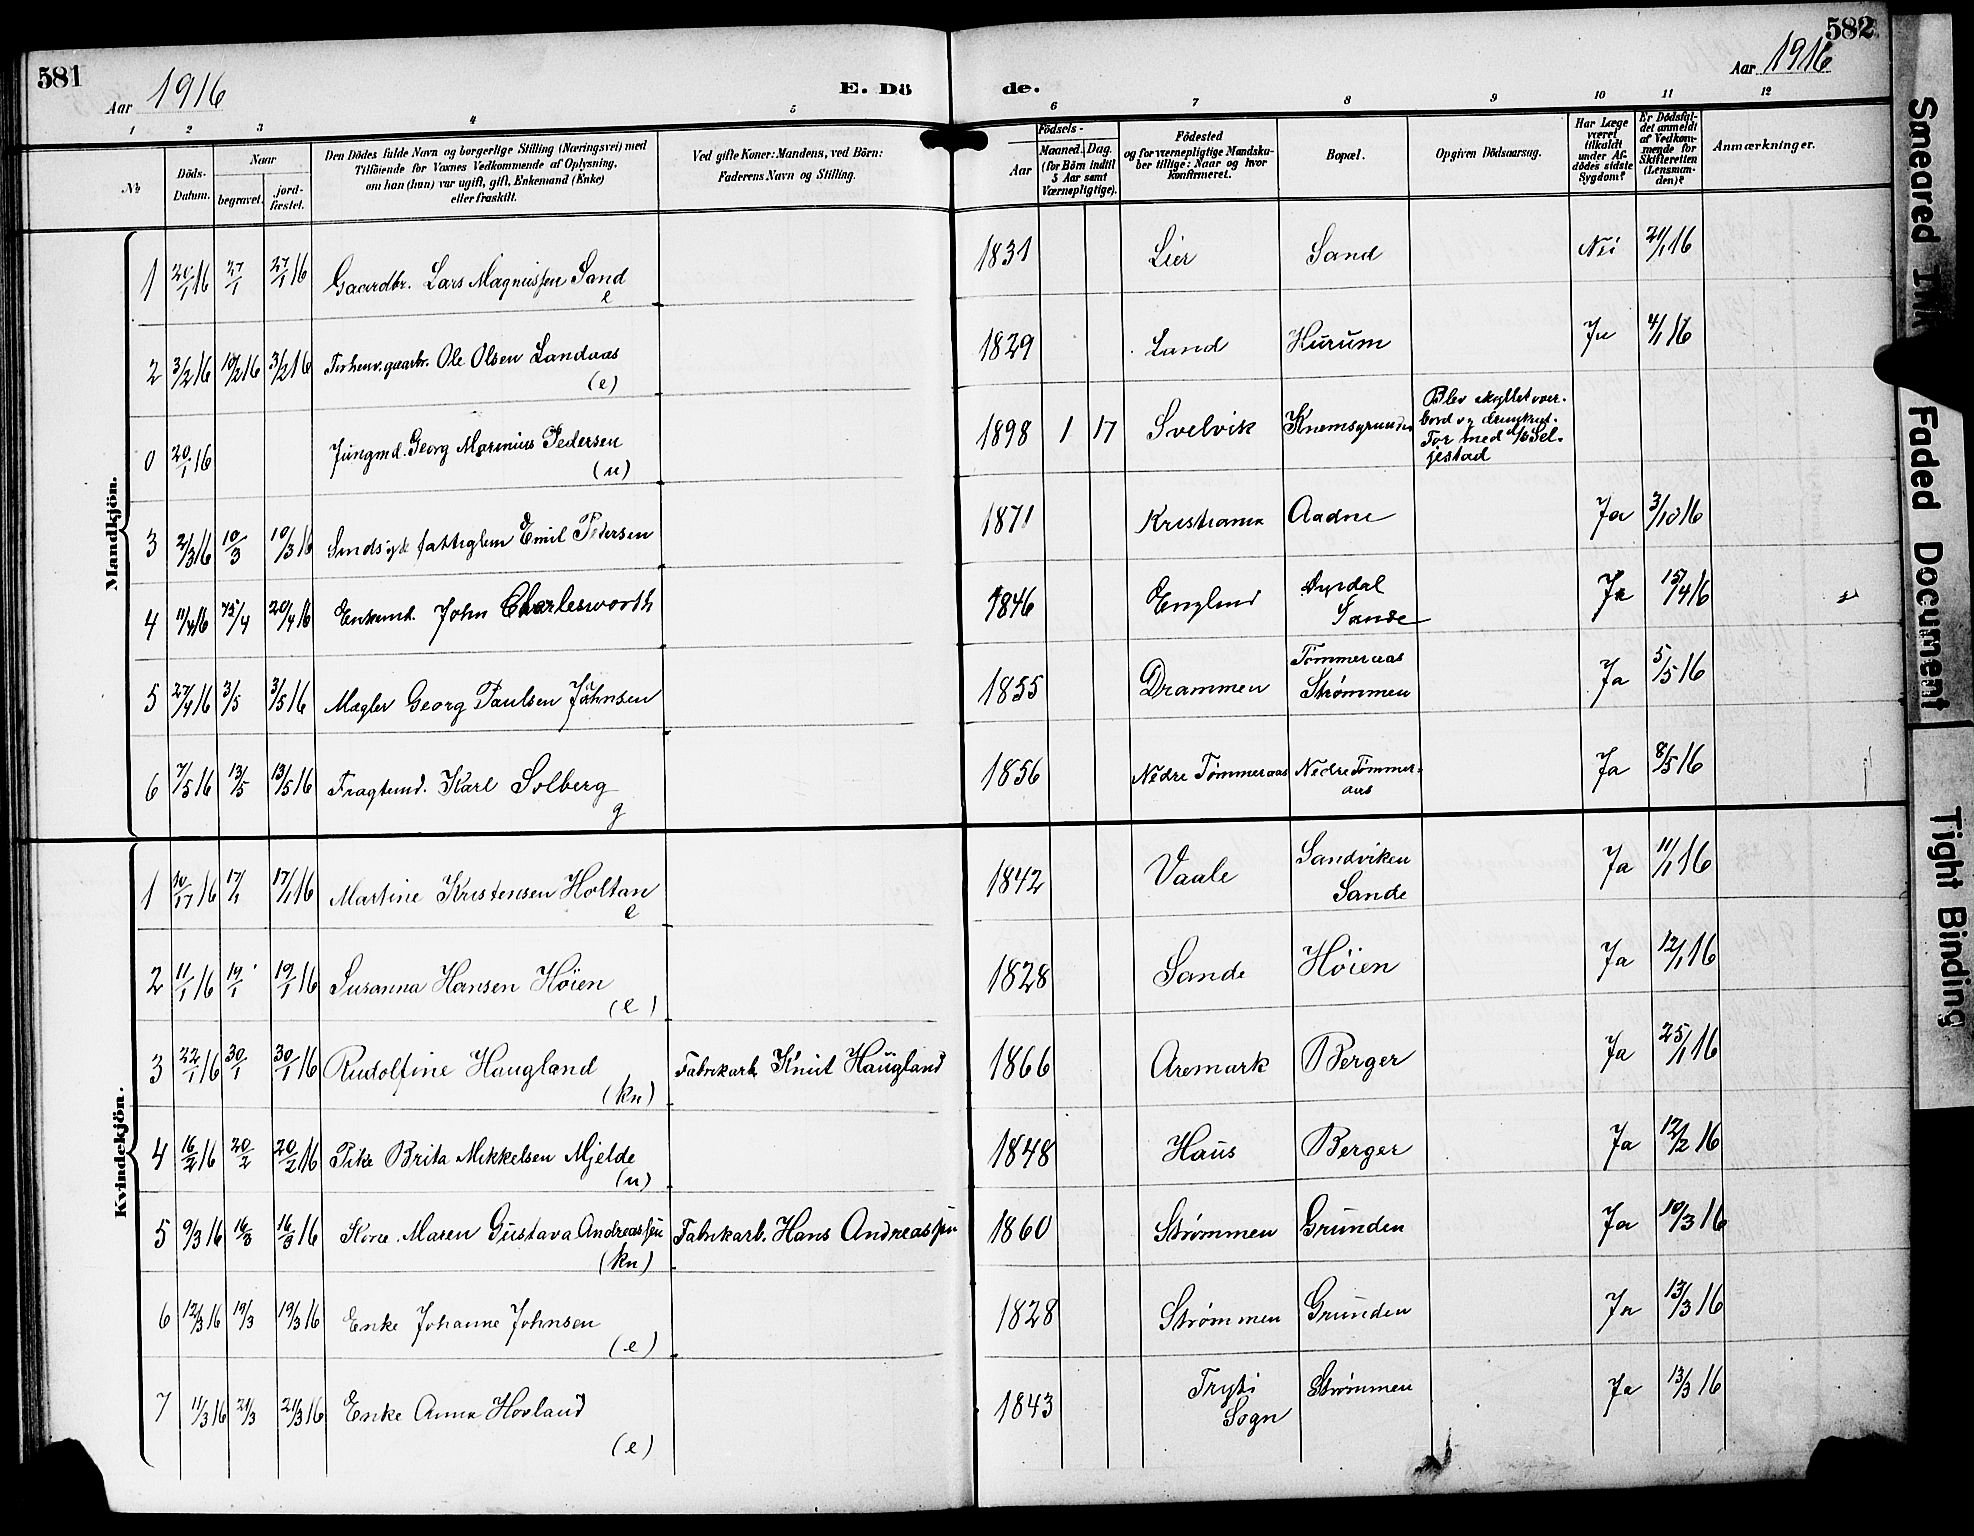 581
Aar 1916
E. Dö
de.
582
Aar 1916
1 2 3 4 5
6 7 8 9 10 11 12
No
Döds-Datum.
Naar
begravet.
jord-fæstet.
Den Dödes fulde Navn og borgerlige Stilling (Næringsvei) med
Tilföiende for Voxnes Vedkommende af Oplysning,
om han (hun) var ugift, gift, Enkemand (Enke)
eller fraskilt.
Ved gifte Koner: Mandens, ved Börn:
Faderens Navn og Stilling.
Födsels-
Aar
Maaned. Dag.
(for Börn indtil
5 Aar samt
Værnepligtige).
Födested
og for værnepligtige Mandska-
ber tillige: Naar og hvor
konfirmeret.
Bopæl.
Opgiven Dödsaarsag.
Har Læge
været
tilkaldt
under Af-
dödes sidste
Sygdom?
Er Dödsfal-
det anmeldt
af Vedkom-
mende for
Skifteretten
(Lensman-
den)?
Anmærkninger.
Mandkjön.
1 20/1 16 27/1 27/1 16 Gaardbr. Lars Magnussen Sand e 1831 Lier Sand Nei 21/1 16
2 3/2 16 10/2 16 3/2 16 Forhenv. gaarbr. Ole Olsen Landaas (e) 1829 Land Hurum Ja 4/1 16
0 20/1 16 Jungmd. Georg Marinius Pedersen (u) 1898 1 17 Svelvik Knemsgrunden
Blev skyllet over-
bord og druknet.
For med d/s Sel-
jestad
3 2/3 16 10/3 10/3 16 Sindsyge fattiglem Emil Pedersen 1871 Kristiania Aadne Ja 3/10 16
4 11/4 16 15/4 20/4 16 Enkemd. John Charlesworth 1846 England
Sande Ja 15/4 16
5 27/4 16 3/5 3/5 16 Mægler Georg Paulsen Johnsen 1855 Drammen Tømmeraas
Strømmen Ja 5/5 16
6 7/5 16 13/5 13/5 16 Fragtemd. Karl Solberg g 1856 Nedre Tømmeraas Nedre Tømmer-
aas Ja 8/5 16
Kvindekjön.
1 10/17 16 17/1 17/1 16 Martine Kristensen Holtan e 1842 Vaale Sandviken
Sande Ja 11/1 16
2 11/1 16 19/1 19/1 16 Susanna Hansen Høien (e) 1828 Sande Høien Ja 12/1 16
3 22/1 16 30/1 30/1 16 Rudolfine Haugland (kn) Fabrikarb. Knut Haugland 1866 Aremark Berger Ja 25/1 16
4 16/2 16 20/2 20/2 16 Pike Brita Mikkelsen Mjelde (u) 1848 Haus Berger Ja 12/2 16
5 9/3 16 16/3 16/3 16 Kone Maren Gustava Andreassen (kn) Fabrikarb. Hans Andreassen 1860 Strømmen Grunden Ja 10/3 16
6 12/3 16 19/3 19/3 16 Enke Johanne Johnsen (e) 1828 Strømmen Grunden Ja 13/3 16
7 11/3 16 21/3 21/3 16 Enke Anna Hovland (e) 1843
Sogn Strømmen Ja 13/3 16
Smeared Ink
Faded Document
Tight Binding